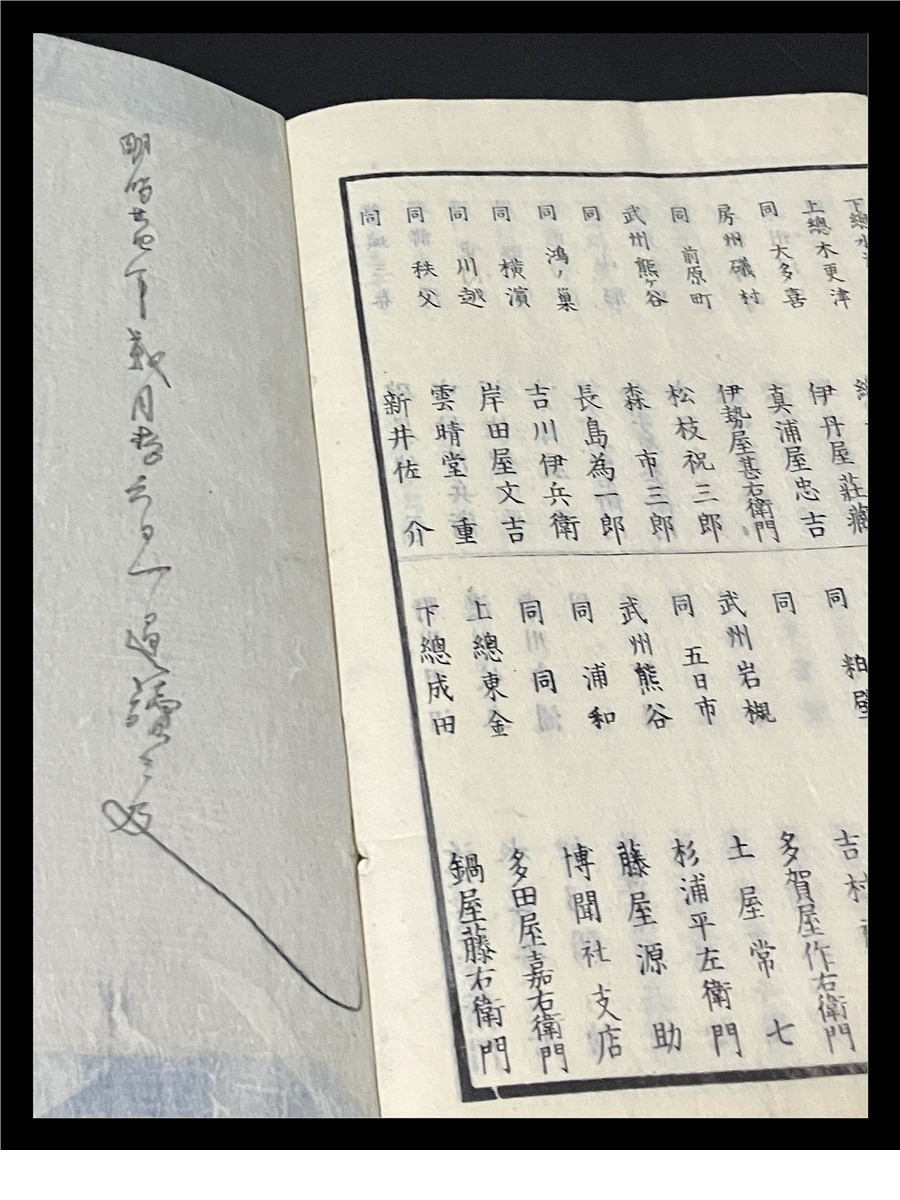 下總水
上總木更津 伊丹屋莊藏
同 大多喜 真浦屋忠吉
房州磯村 伊勢屋甚右衛門
同 前原町 松枝祝三郎
武州熊ヶ谷 森市三郎
同 長島為一郎
同 鴻ノ巣 吉川伊兵衛
同 横濱 岸田屋文吉
同 川越 雲晴堂重
同 秩父 新井佐介
同
同 粕壁 吉村
同 多賀屋作右衛門
武州岩槻 土屋常七
同 五日市 杉浦平左衛門
武州熊谷 藤屋源助
同 浦和 博聞社支店
同 同 多田屋嘉右衛門
上總東金 鍋屋藤右衛門
下總成田
明治 年貳月 日一過讀